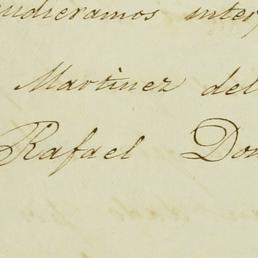 pudieramos inter
Martinez del
Rafael Don